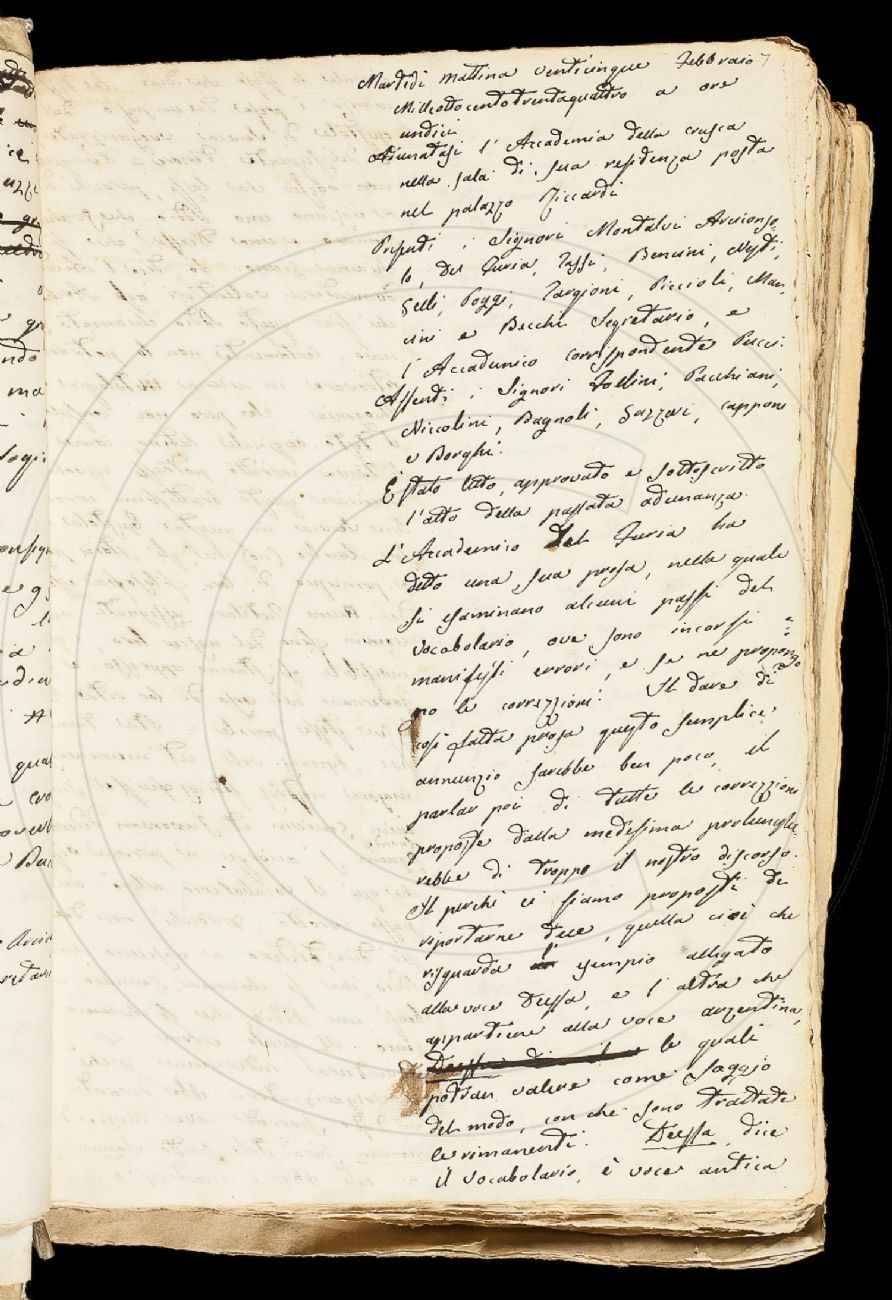 Martedì mattina venticinque Febbraio 7
Milleottocentotrentaquattro a ore
undici
Adunatasi l'Accademia della crusca
nella sala di sua residenza posta
nel palazzo Riccardi
Presenti i Signori Montalvi Arciconso-
lo, Del Furia, Tassi, Bencini, Nesti,
Gelli, Poggi, Targioni, Piccioli, Man-
cini e Becchi Segretario, e
l'Accademico corrispondente Pucci.
Assenti i Signori Follini, Pacchiani,
Niccolini, Bagnoli, Gazzeri, Capponi
e Borghi.
È stato letto, approvato e sottoscritto
l'atto della passata adunanza.
L'Accademico Del Furia ha
detto una sua prosa, nella quale
si esaminano alcuni passi del
vocabolario, ove sono incorsi
manifesti errori, e se ne propongo
no le correzzioni. Il dare di
così fatta prosa questo semplice
annunzio sarebbe ben poco, il
parlar poi di tutte le correzzioni
proposte dalla medesima prolunghe-
rebbe di troppo il nostro discorso.
Il perchè ci siamo proposti di
riportarne due, quella cioè che
risguarda l' esempio allegato
alla voce Deessa, e l'altra che
appartiene alla voce arzentina,
le quali
potran valere come saggio
del modo, con che sono trattate
le rimanenti. Deessa, dice
il vocabolario, è voce antica